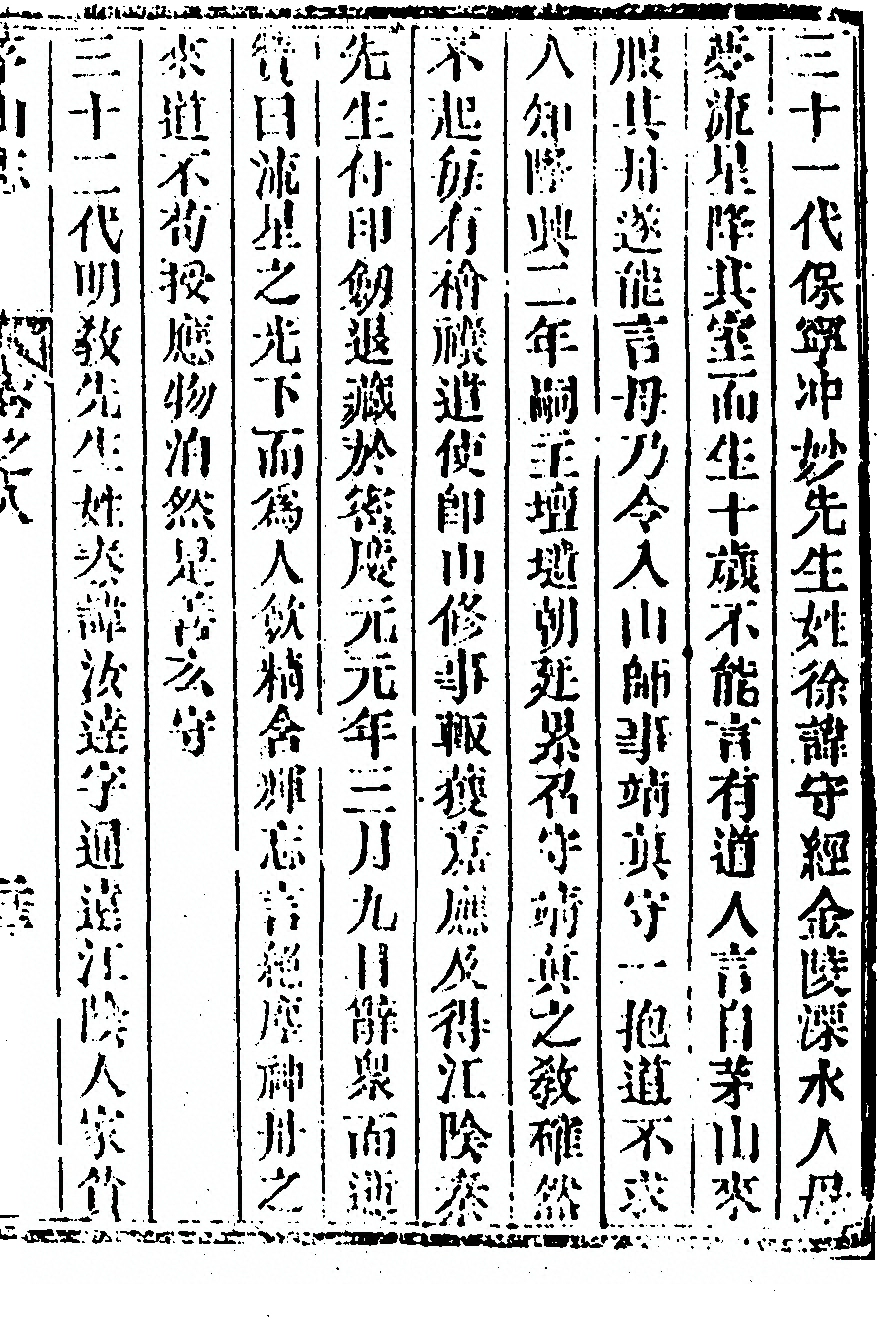 三十一代保寧冲妙先生姓徐諱守經金陵溧水人母
夢流星降其室而生十歲不能言有道人言自茅山來
服其丹遂能言母乃令入山師事靖真守一抱道不求
人知隆興二年嗣主壇墠朝廷累召守靖真之教確然
不起每有禬禳遣使卽山修事輙獲嘉應及得江陰秦
先生付印劒退藏於密慶元元年三月九日辭衆而逝
贊曰流星之光下而爲人歛精含輝忘言絶塵神丹之
來道不苟授應物泊然是善玄守
三十二代明教先生姓秦諱汝達字通遠江陰人家貲
茅山志
卷之八